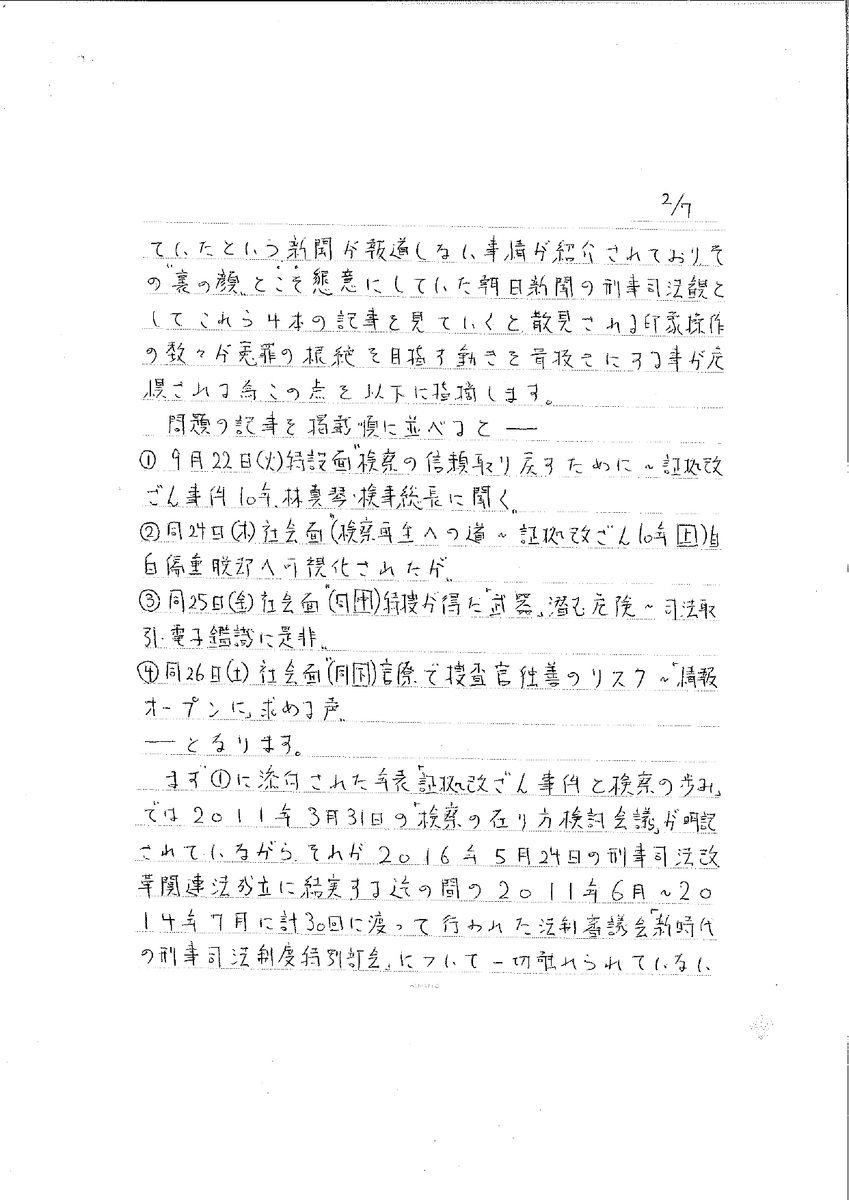 2/7
ていたという新聞が報道しない事情が紹介されておりそ
の"裏の顔"とこそ懇意にしていた朝日新聞の刑事司法観と
してこれら4本の記事を見ていくと散見される印象操作
の数々が冤罪の根絶を目指す動きを骨抜きにする事が危
惧される為この点を以下に指摘します。
問題の記事を掲載順に並べると──
①9月22日(火)特設面"検察の信頼取り戻すために～証拠改
ざん事件10年、林真琴・検事総長に聞く"
②同24日(木)社会面"(検察再生への道～証拠改ざん10年上)自
白偏重脱却へ可視化されたが"
③同25日(金)社会面"(同中)特捜が得た「武器」潜む危険～司法取
引・電子鑑識に是非"
④同26日(土)社会面"(同下)言際で捜査官独善のリスク～「情報
オープンに」求める声"
──となります。
まず①に添付された年表「証拠改ざん事件と検察の歩み」
では2011年3月31日の「検察の在り方検討会議」が明記
されていながらそれが2016年5月24日の刑事司法改
革関連法成立に結実する迄の間の2011年6月～20
14年7月に計30回に渡って行われた法制審議会「新時代
の刑事司法制度特別部会」について一切触れられていない